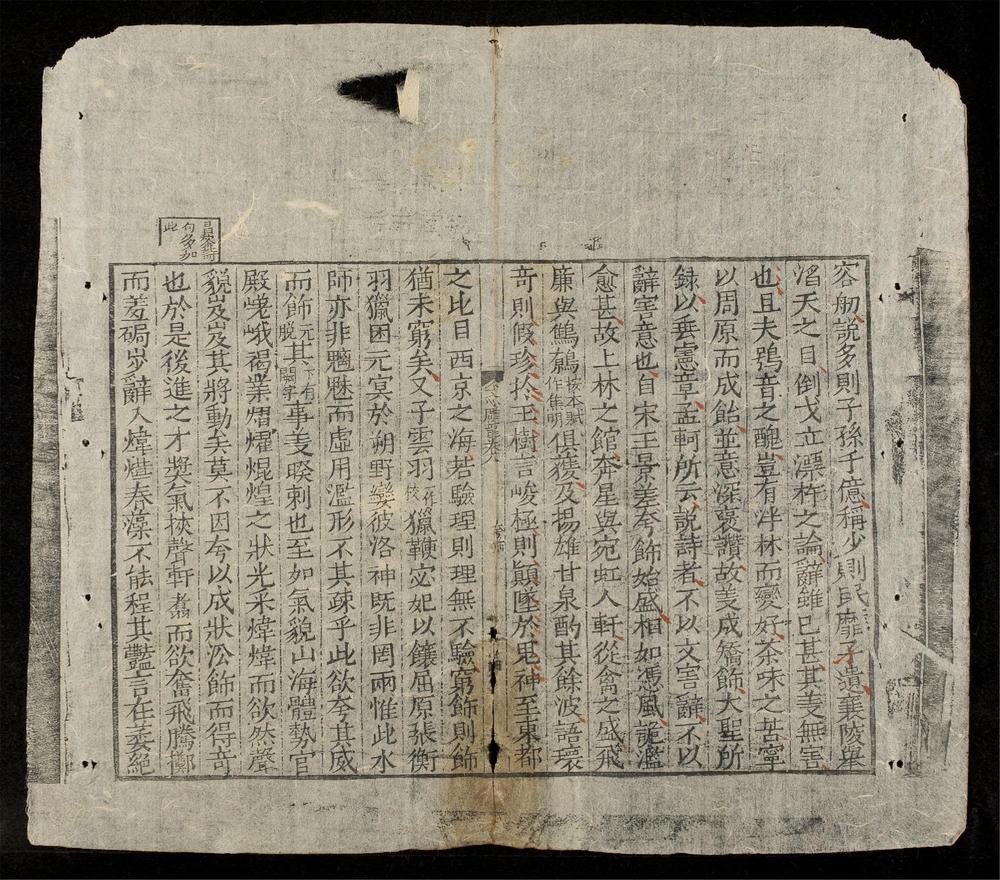 容舠說多則子孫千億稱少則民靡孑遺襄陵舉
滔天之目倒戈立漂杵之論辭雖已甚其義無害
也且夫鴞音之醜豈有泮林而變好荼味之苦寧
以周原而成飴並意深褒讚故義成矯飾大聖所
録以垂憲章孟軻所云說詩者不以文害辭不以
辭害意也自宋玉景差夸飾始盛相如憑風詭濫
愈甚故上林之館奔星與宛虹入軒從禽之盛飛
廉與鷦鷯按本賦作焦明俱獲及揚雄甘泉酌其餘波語瓌
奇則假珍於玉樹言峻極則顛墜於鬼神至東都
之比目西京之海若驗理則理無不驗窮飾則飾
猶未窮矣又子雲羽作校獵鞭宓妃以饟屈原張衡
羽獵困元冥於朔野孌彼洛神既非罔兩惟此水
師亦非魑魅而虛用濫形不其疎乎此欲夸其威
而飾元脫其下有闕字事義暌剌也至如氣貌山海體勢宮
殿嵯峨揭業熠燿焜煌之狀光采煒煒而欲然聲
貌岌岌其將動矣莫不因夸以成狀沿飾而得奇
也於是後進之才獎氣挾聲軒翥而欲奮飛騰擲
而羞跼步辭入煒燁春藻不能程其豔言在萎絕
句多如
此